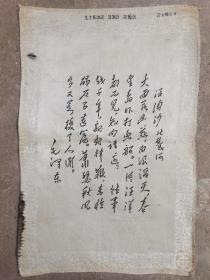 浪淘沙 北戴河
大雨落幽燕 白浪滔天 秦
皇岛外打鱼船 一片汪洋
都不见 知向谁边 往事
越千年 魏武挥鞭 东临
碣石有遗篇 萧瑟秋风
今又是 换了人间
毛泽东